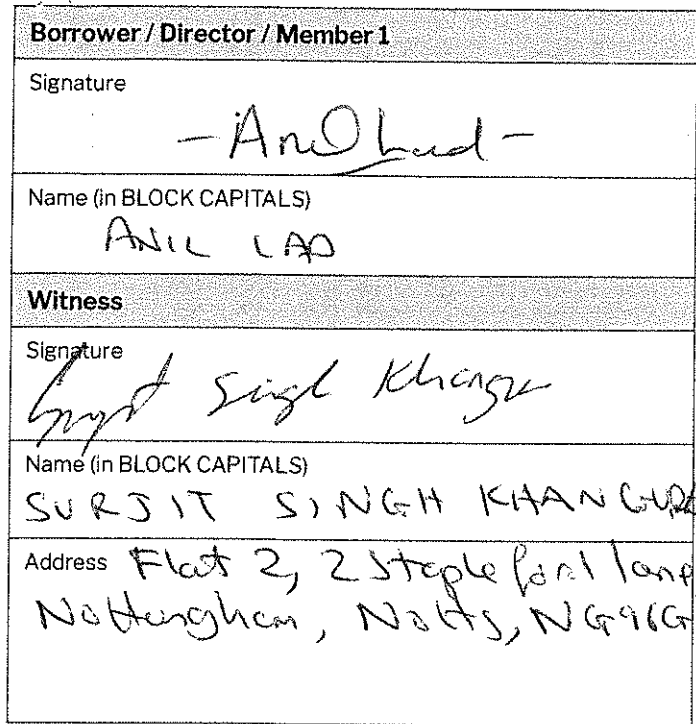 Borrower / Director / Member 1
Signature
Name (in BLOCK CAPITALS)
ANIL LAD
Witness
Signature
Singh
Name (in BLOCK CAPITALS)
SURJIT SINGH KHANGURA
Address Flat 2, 2 Stapleford lane
Nottingham, Notts, NG96G